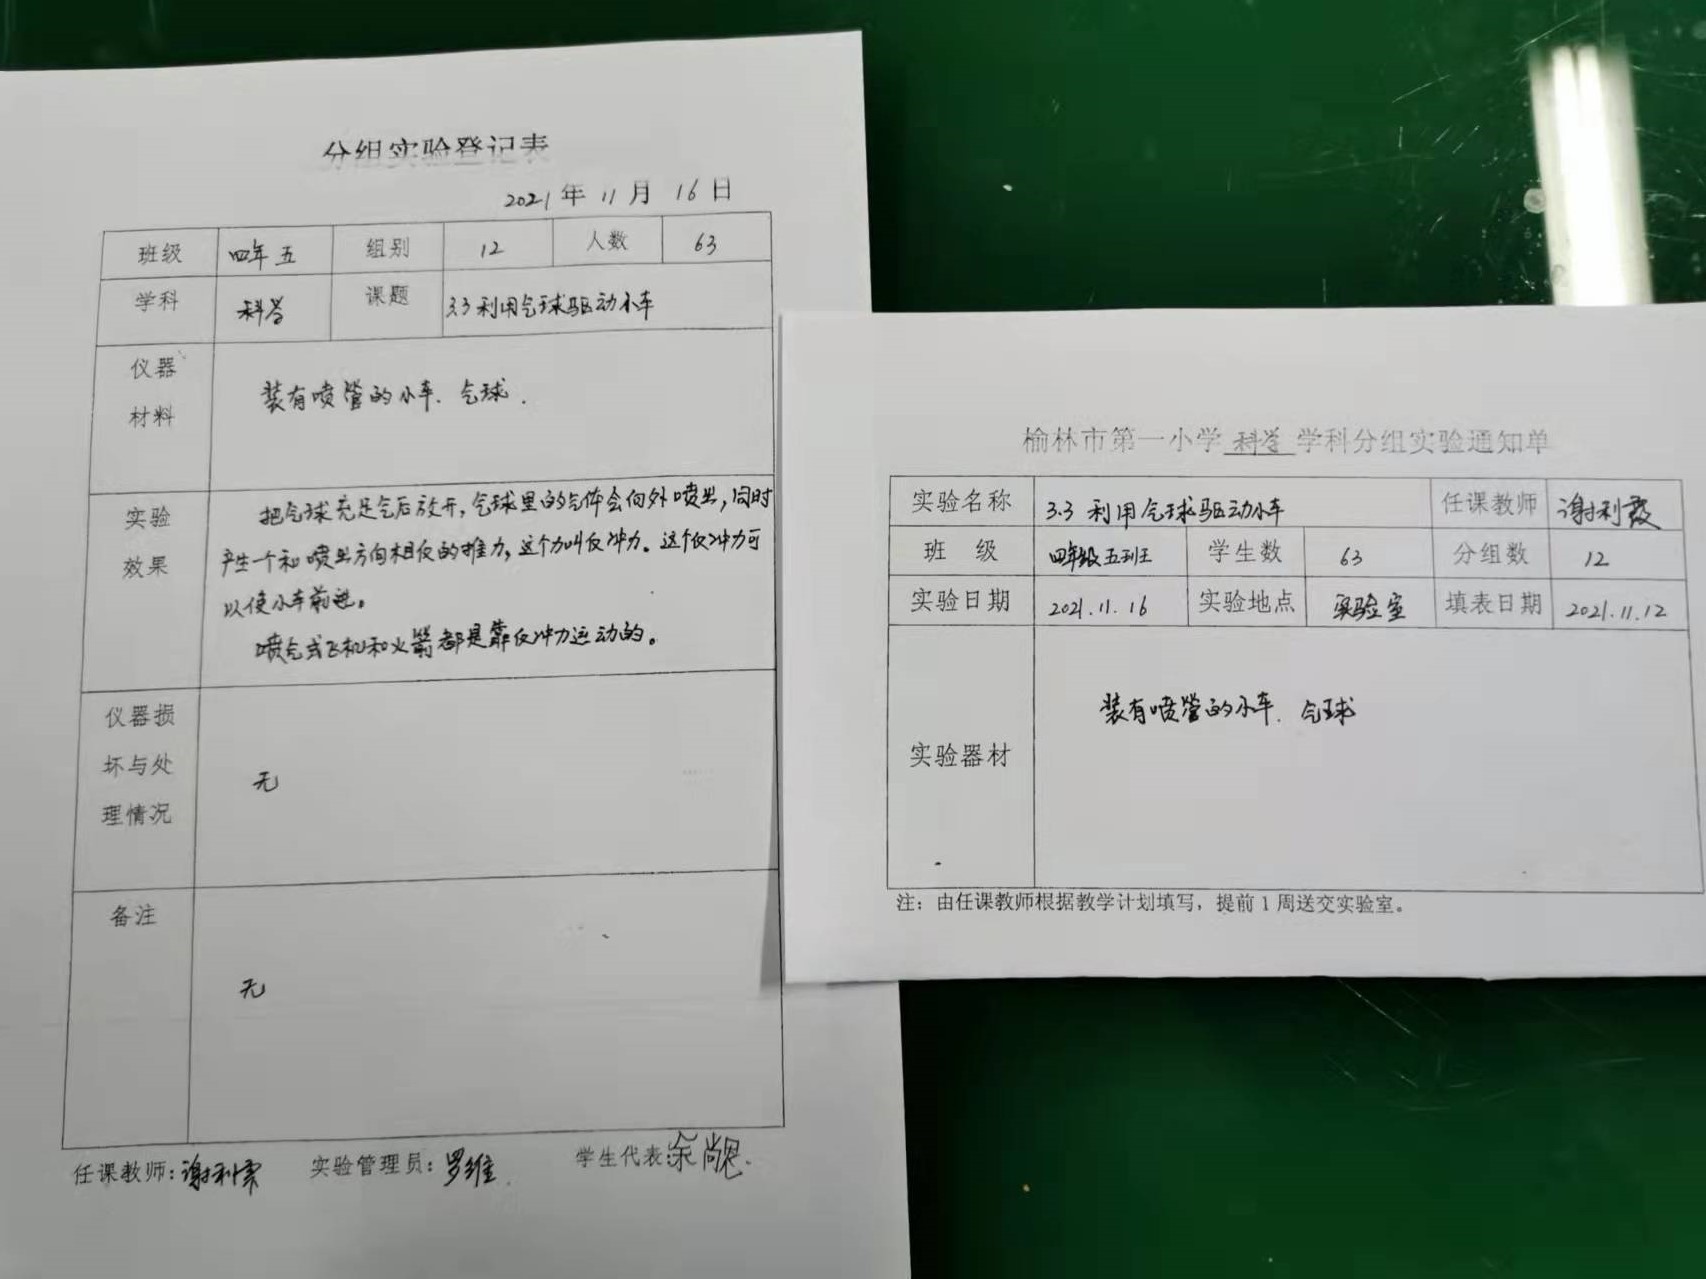 分组实验登记表
2021年11月16日
班级 四年五 组别 12 人数 63
学科 科学 课题 3.3利用气球驱动小车
仪器
材料
装有喷管的小车、气球.
实验
效果
把气球充足气后放开,气球里的气体会向外喷出,同时
产生一个和喷出方向相反的推力,这个力叫反冲力。这个反冲力可
以使小车前进。
喷气式飞机和火箭都是靠反冲力运动的。
仪器损
坏与处
理情况
无
备注
无
任课教师:谢利霞 实验管理员:罗维 学生代表:
榆林市第一小学科学学科分组实验通知单
实验名称 3.3 利用气球驱动小车 任课教师 谢利霞
班 级 四年级五班 学生数 63 分组数 12
实验日期 2021.11.16 实验地点 实验室 填表日期 2021.11.12
实验器材
装有喷管的小车、气球
注：由任课教师根据教学计划填写，提前1周送交实验室。